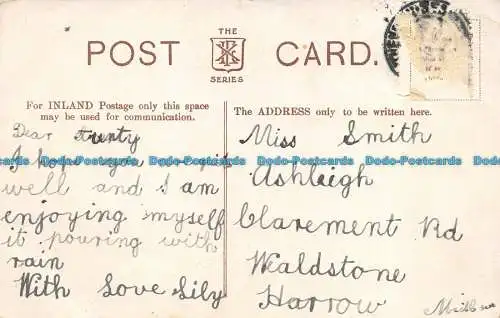 THE
POST CARD.
SERIES
For INLAND Postage only this space
may be used for communication.
The ADDRESS only to be written here.
Dear Aunty
I hope you
well and I am
enjoying myself
it pouring with
rain
With Love Lily
Miss Smith
Ashleigh
Claremont Rd
Wealdstone
Harrow
Dodo-Postcards Dodo-Postcards Dodo-Postcards Dodo-Postcards Dodo-Postcards